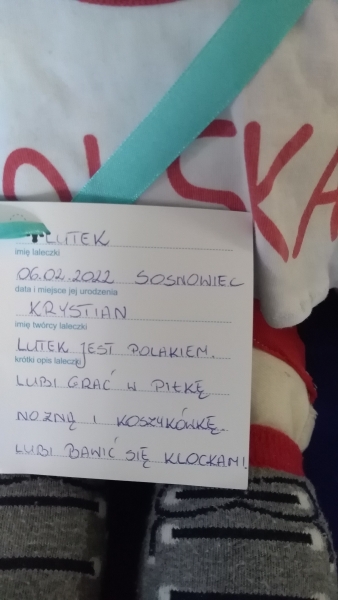 POLSKA
LUTEK
imię laleczki
06.02.2022 SOSNOWIEC
data i miejsce jej urodzenia
KRYSTIAN
imię twórcy laleczki
LUTEK JEST POLAKIEM.
krótki opis laleczki
LUBI GRAĆ W PIŁKĘ
NOŻNĄ I KOSZYKÓWKĘ.
LUBI BAWIĆ SIĘ KLOCKAMI.